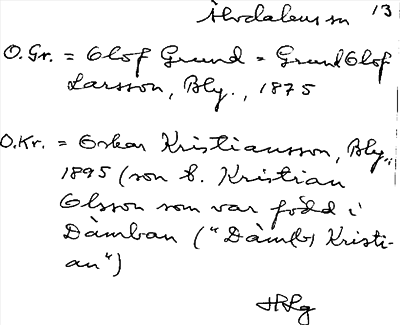 Älvdalens sn 13
O.Gr. = Olof Grund = Grund Olof
Larsson, Bly., 1875
O.Kr. = Oskar Kristiansson, Bly.,
1895 (son t. Kristian
Olsson som var född i
Dämban ("Dämb Kristi-
an")